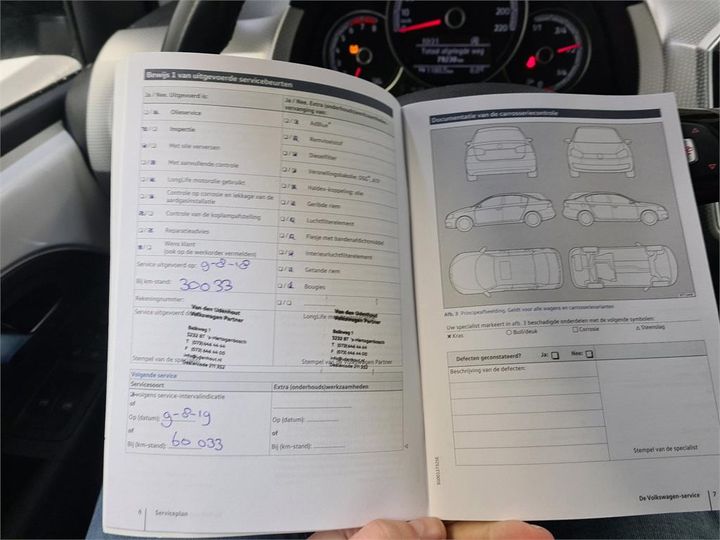 Bewijs 1 van uitgevoerde servicebeurten
Ja / Nee. Uitgevoerd is:
Olieservice
Inspectie
Met olie verversen
Met aanvullende controle
LongLife motorolie gebruikt
Controle op corrosie en lekkage van de
aardgasinstallatie
Controle van de koplampafstelling
Reparatieadvies
Wens klant
(ook op de werkorder vermelden)
Service uitgevoerd op: 9-8-18
Bij km-stand: 30033
Rekeningnummer:
Service uitgevoerd
Van den Udenhout
Volkswagen Partner
Balkweg 1
5232 BT 's-Hertogenbosch
T (073) 646 44 44
Stempel van de
Ja / Nee. Extra (onderhouds)werkzaamheden,
vervanging van:
AdBlue
Remvloeistof
Dieselfilter
Versnellingsbakolie:
Haldex-koppeling: olie
Geribde riem
Luchtfilterelement
Flesje met bandenafdichtmiddel
Interieurluchtfilterelement
Getande riem
Bougies
LongLife
Van den Udenhout
Volkswagen Partner
Balkweg 1
5232 BT 's-Hertogenbosch
T (073) 646 44 44
Stempel van de Volkswagen Partner
Volgende service
Servicesoort
Extra (onderhouds)werkzaamheden
volgens service-intervalindicatie
of
Op (datum): 9-8-19
of
Bij (km-stand): 60 033
Op (datum):
of
Bij (km-stand):
6 Serviceplan
Documentatie van de carrosseriecontrole
Afb. 3 Principeafbeelding. Geldt voor alle wagens en carrosserievarianten
Uw specialist markeert in afb. 3 beschadigde onderdelen met de volgende symbolen:
× Kras
○ Buil/deuk
□ Corrosie
△ Steenslag
Defecten geconstateerd? Ja: Nee:
Beschrijving van de defecten:
Stempel van de specialist
De Volkswagen-service 7
Totaal afgelegde weg
200
220